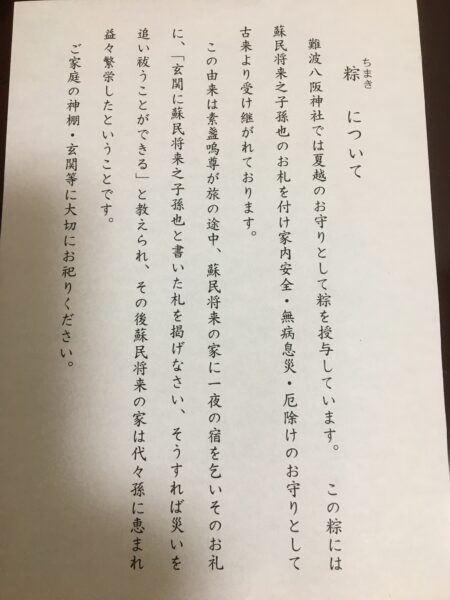 粽 について
ちまき
難波八阪神社では夏越のお守りとして粽を授与しています。 この粽には
蘇民将来之子孫也のお札を付け家内安全・無病息災・厄除けのお守りとして
古来より受け継がれております。
この由来は素盞嗚尊が旅の途中、蘇民将来の家に一夜の宿を乞いそのお礼
に、「玄関に蘇民将来之子孫也と書いた札を掲げなさい、そうすれば災いを
追い祓うことができる」と教えられ、その後蘇民将来の家は代々孫に恵まれ
益々繁栄したということです。
ご家庭の神棚・玄関等に大切にお祀りください。